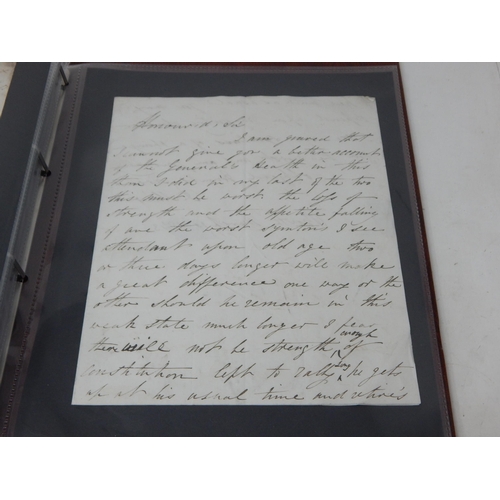 Honour'd Sir
I am greived that
I cannot give you a better account
of the General's Health in this
then I did in my last if the two
this must be worst the loss of
strength and the appetite falling
of are the worst symtoms I see
attendant upon old age two
or three days longer will make
a great difference one way or the
other should he remain in this
weak state much longer I fear
there will not be strength enough of
constitution left to rally he gets
up at his usual time and retires